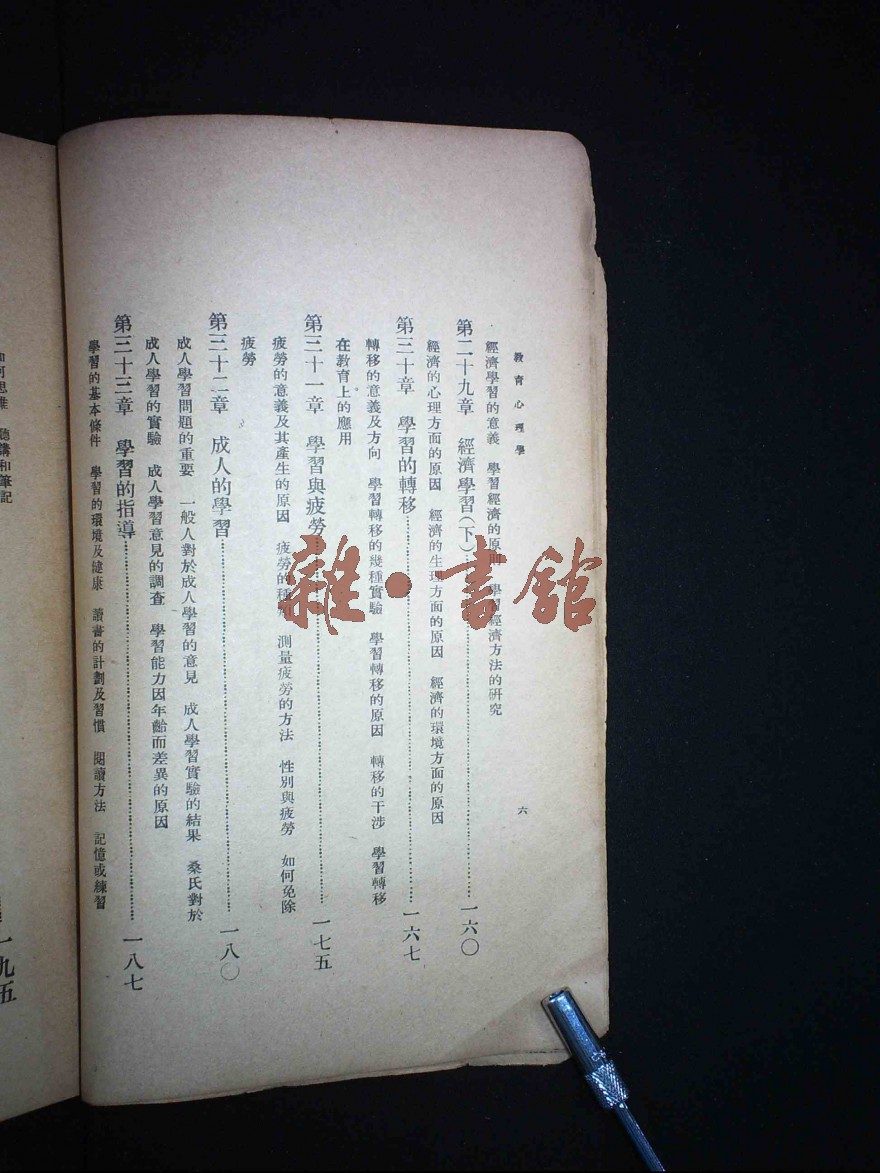 教育心理學
六
經濟學習的意義　學習經濟的原則　學習經濟方法的研究
第二十九章　經濟學習(下)……一六〇
經濟的心理方面的原因　經濟的生理方面的原因　經濟的環境方面的原因
第三十章　學習的轉移……一六七
轉移的意義及方向　學習轉移的幾種實驗　學習轉移的原因　轉移的干涉　學習轉移
在教育上的應用
第三十一章　學習與疲勞……一七五
疲勞的意義及其產生的原因　疲勞的種　測量疲勞的方法　性別與疲勞　如何免除
疲勞
第三十二章　成人的學習……一八〇
成人學習問題的重要　一般人對於成人學習的意見　成人學習實驗的結果　桑氏對於
成人學習的實驗　成人學習意見的調查　學習能力因年齡而差異的原因
第三十三章　學習的指導……一八七
學習的基本條件　學習的環境及健康　讀書的計劃及習慣　閱讀方法　記憶或練習
如何思維　聽講和筆記
一九五
雜·書館